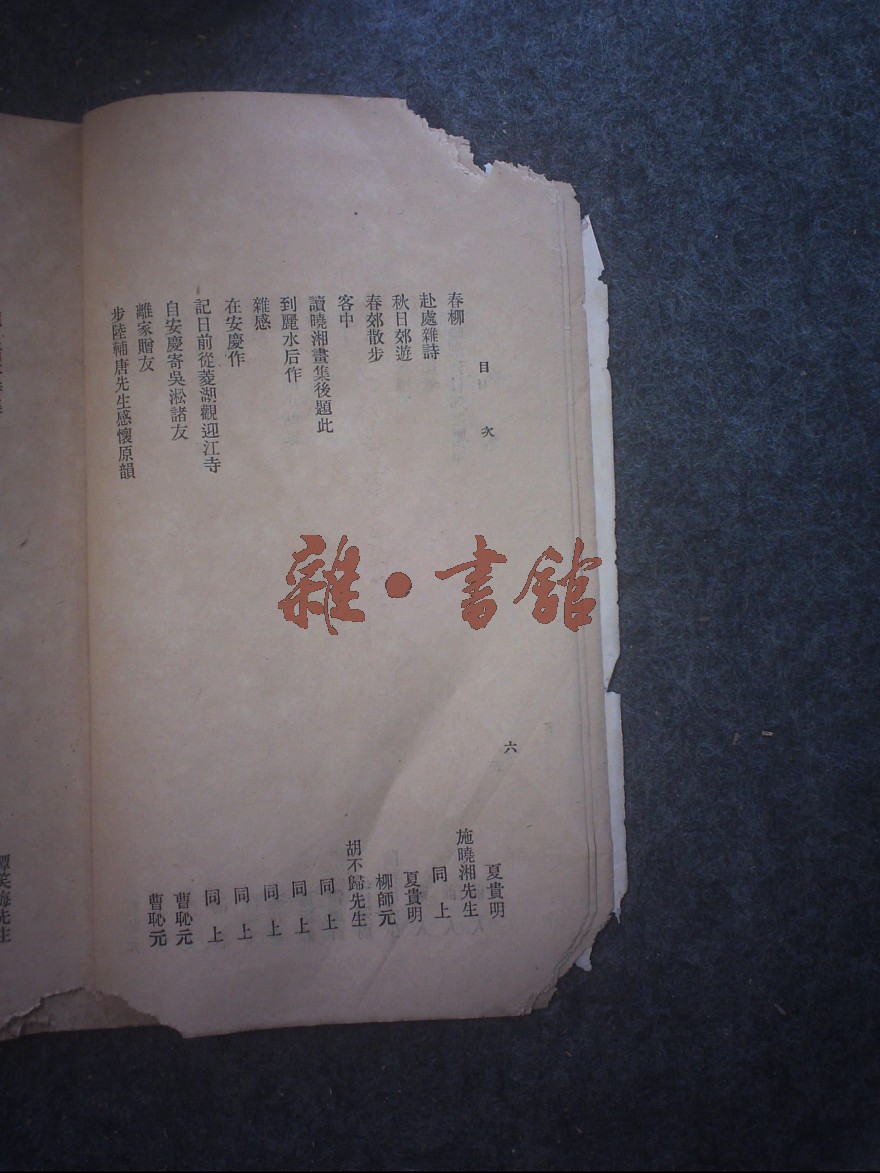 目次
六
春柳 夏貴明
赴處雜詩 施曉湘先生
秋日郊遊 同上
春郊散步 夏貴明
客中 柳師元
讀曉湘畫集後題此 胡不歸先生
到麗水后作 同上
雜感 同上
在安慶作 同上
記日前從菱湖觀迎江寺 同上
自安慶寄吳淞諸友 同上
離家贈友 曹恥元
步陸補唐先生感懷原韻 曹恥元
先生
雜·書館